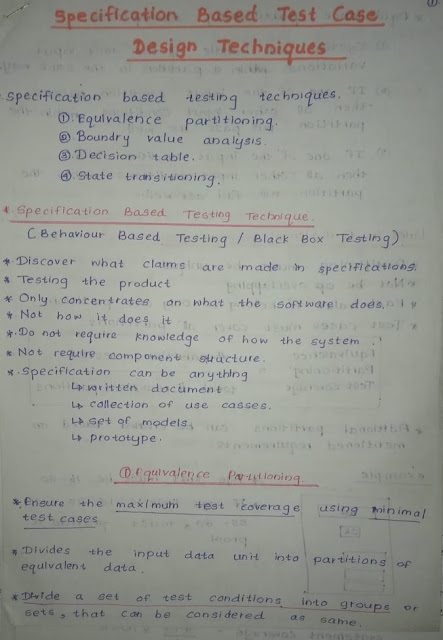 Specification Based Test Case
Design Techniques
specification based testing techniques.
① Equivalence partitioning.
② Boundry value analysis.
③ Decision table.
④ State transitioning.
* Specification Based Testing Technique.
( Behaviour Based Testing / Black Box Testing)
* Discover what claims are made in specifications.
* Testing the product
* Only concentrates on what the software does.
* Not how it does it
* Do not require knowledge of how the system.
* Not require component structure.
* Specification can be anything
↳ written document
↳ collection of use casses.
↳ set of models.
↳ prototype.
① Equivalence Partitioning
* Ensure the maximum test coverage using minimal
test cases
* Divides the input data unit into partitions of
equivalent data.
* Divide a set of test conditions into groups or
sets, that can be considered as same.